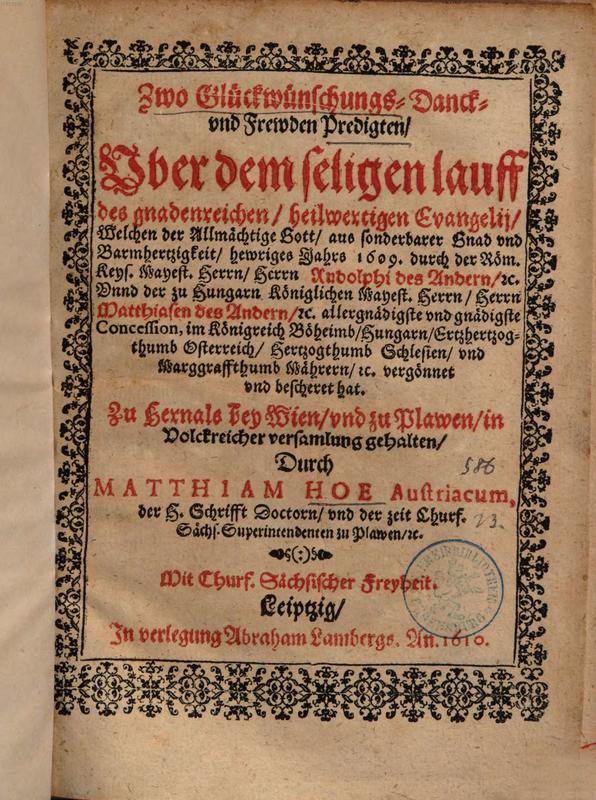 Zwo Glückwünschungs-Danck-
vnd Frewden Predigten/
Vber dem seligen lauff
des gnadenreichen/ heilwertigen Evangelij/
Welchen der Allmächtige Gott/ aus sonderbarer Gnad vnd
Barmhertzigkeit/ hewriges Jahrs 1609. durch der Röm.
Keys. Mayest. Herrn/ Herrn Rudolphi des Andern/ ꝛc.
Vnnd der zu Hungarn Königlichen Mayest. Herrn/ Herrn
Matthiasen des Andern/ ꝛc. allergnädigste vnd gnädigste
Concession, im Königreich Böheimb/ Hungarn/ Ertzhertzog-
thumb Osterreich/ Hertzogthumb Schlesien/ vnd
Marggraffthumb Mährern/ ꝛc. vergönnet
vnd bescheret hat.
Zu Hernals bey Wien/ vnd zu Plawen/ in
Volckreicher versamlung gehalten/
Durch
MATTHIAM HOE Austriacum,
der H. Schrifft Doctorn/ vnd der zeit Churf.
Sächs. Superintendenten zu Plawen/ ꝛc.
586
23.
Mit Churf. Sächsischer Freyheit.
Leiptzig/
In verlegung Abraham Lambergs. An. 1610.